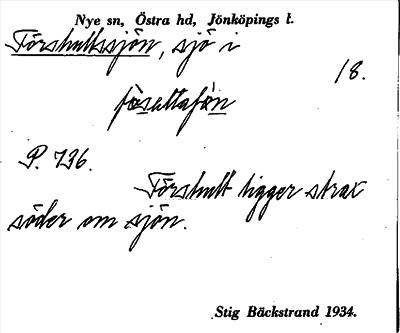 Nye sn, Östra hd, Jönköpings l.
Törshultssjön, sjö i
18.
P. 736.
Törshult ligger strax
söder om sjön.
Stig Bäckstrand 1934.